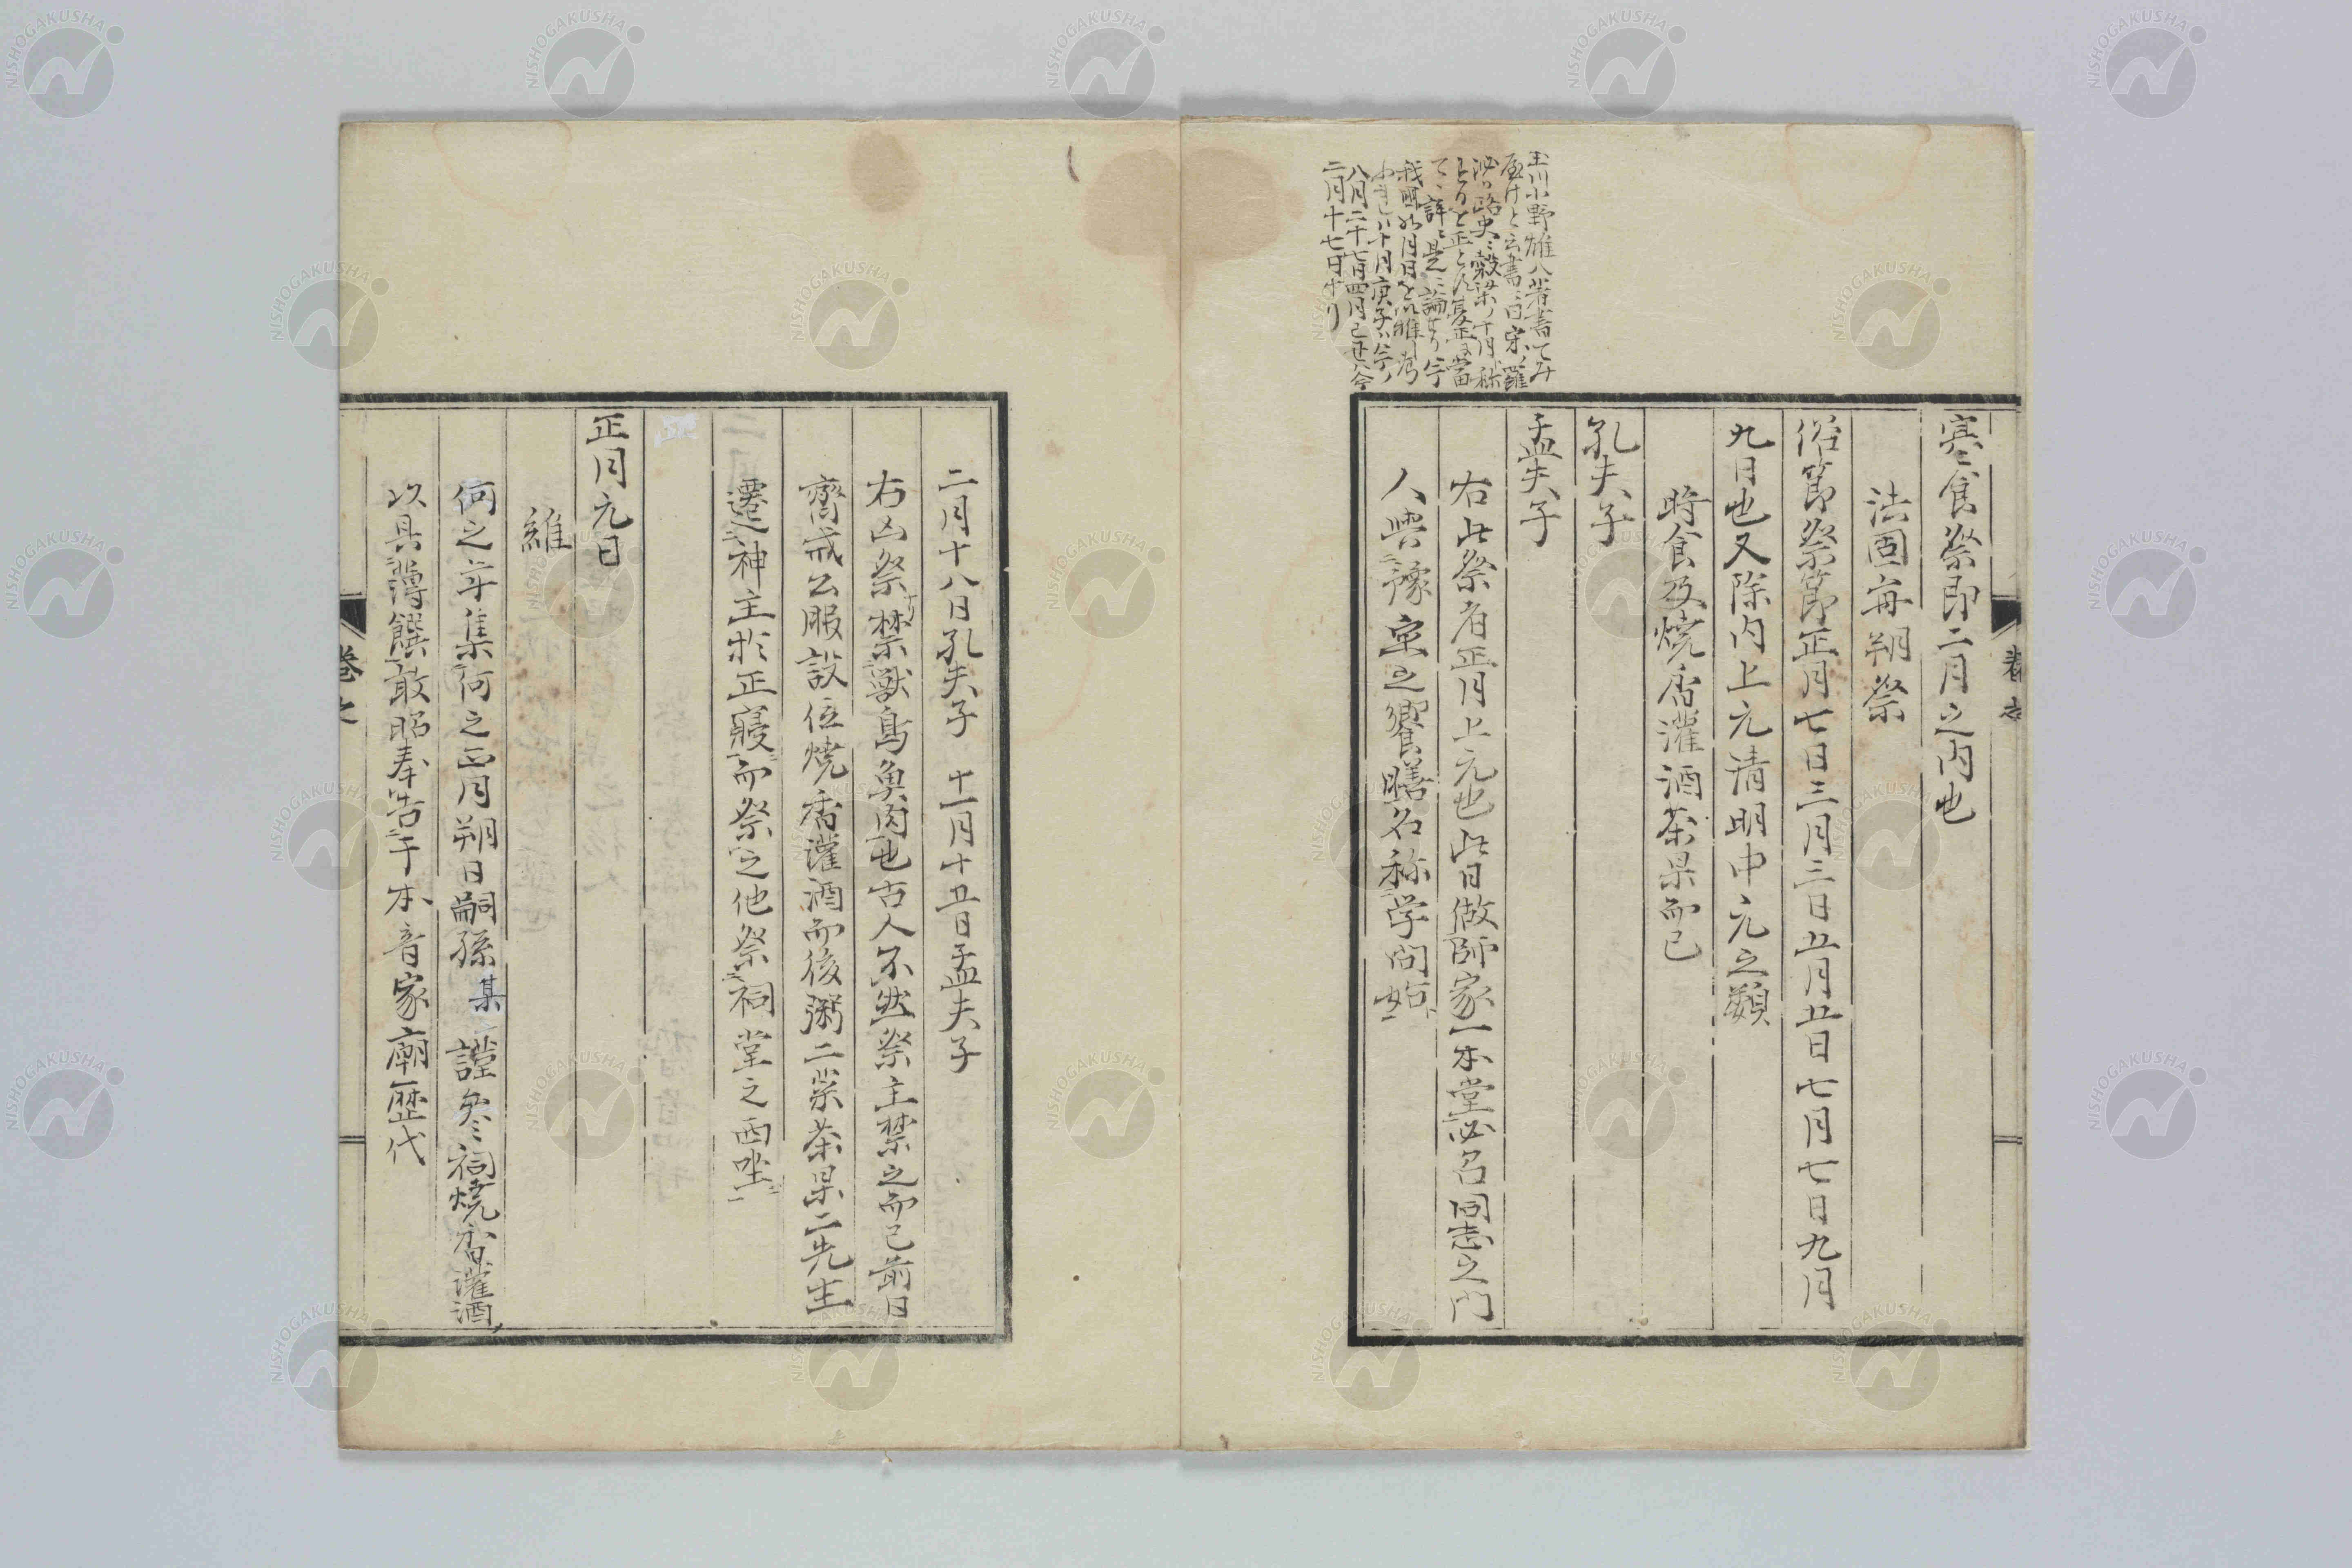 寒食祭即二月之内也
法固毎朔祭
俗節祭節正月七日三月三日五月五日七月七日九月
九日也又除内上元清明中元之類
時食及燒香灌酒茶果而已
孔夫子
孟夫子
右此祭者正月上元也此日做師家一本堂必名同志之門
人與豫定之饗膳名称学問始
玉川小野雄八著書てみ
屋けと云書ニ曰宋ノ羅
泌カ路史ニ穀梁ノ十月ト称
とるを正とし夏正ニ當
て詳ニ是ヲ論せり今
我国の月日を以推し考
八十月庚子ハ今ノ
八月二十七日四月己丑ハ今
二月十七日ナリ
二月十八日孔夫子 十一月十五日孟夫子
右凶祭ナリ禁獣鳥魚肉也古人不然祭主禁之而已前日
齊戒公服設位燒香灌酒而後粥二菜茶果二先生
遷神主於正寢而祭之他祭祠堂之西坐
正月元日
維
何之年集何之正月朔日嗣孫某謹参祠燒香灌酒
以具薄饌敢昭奉告于本音家廟歴代